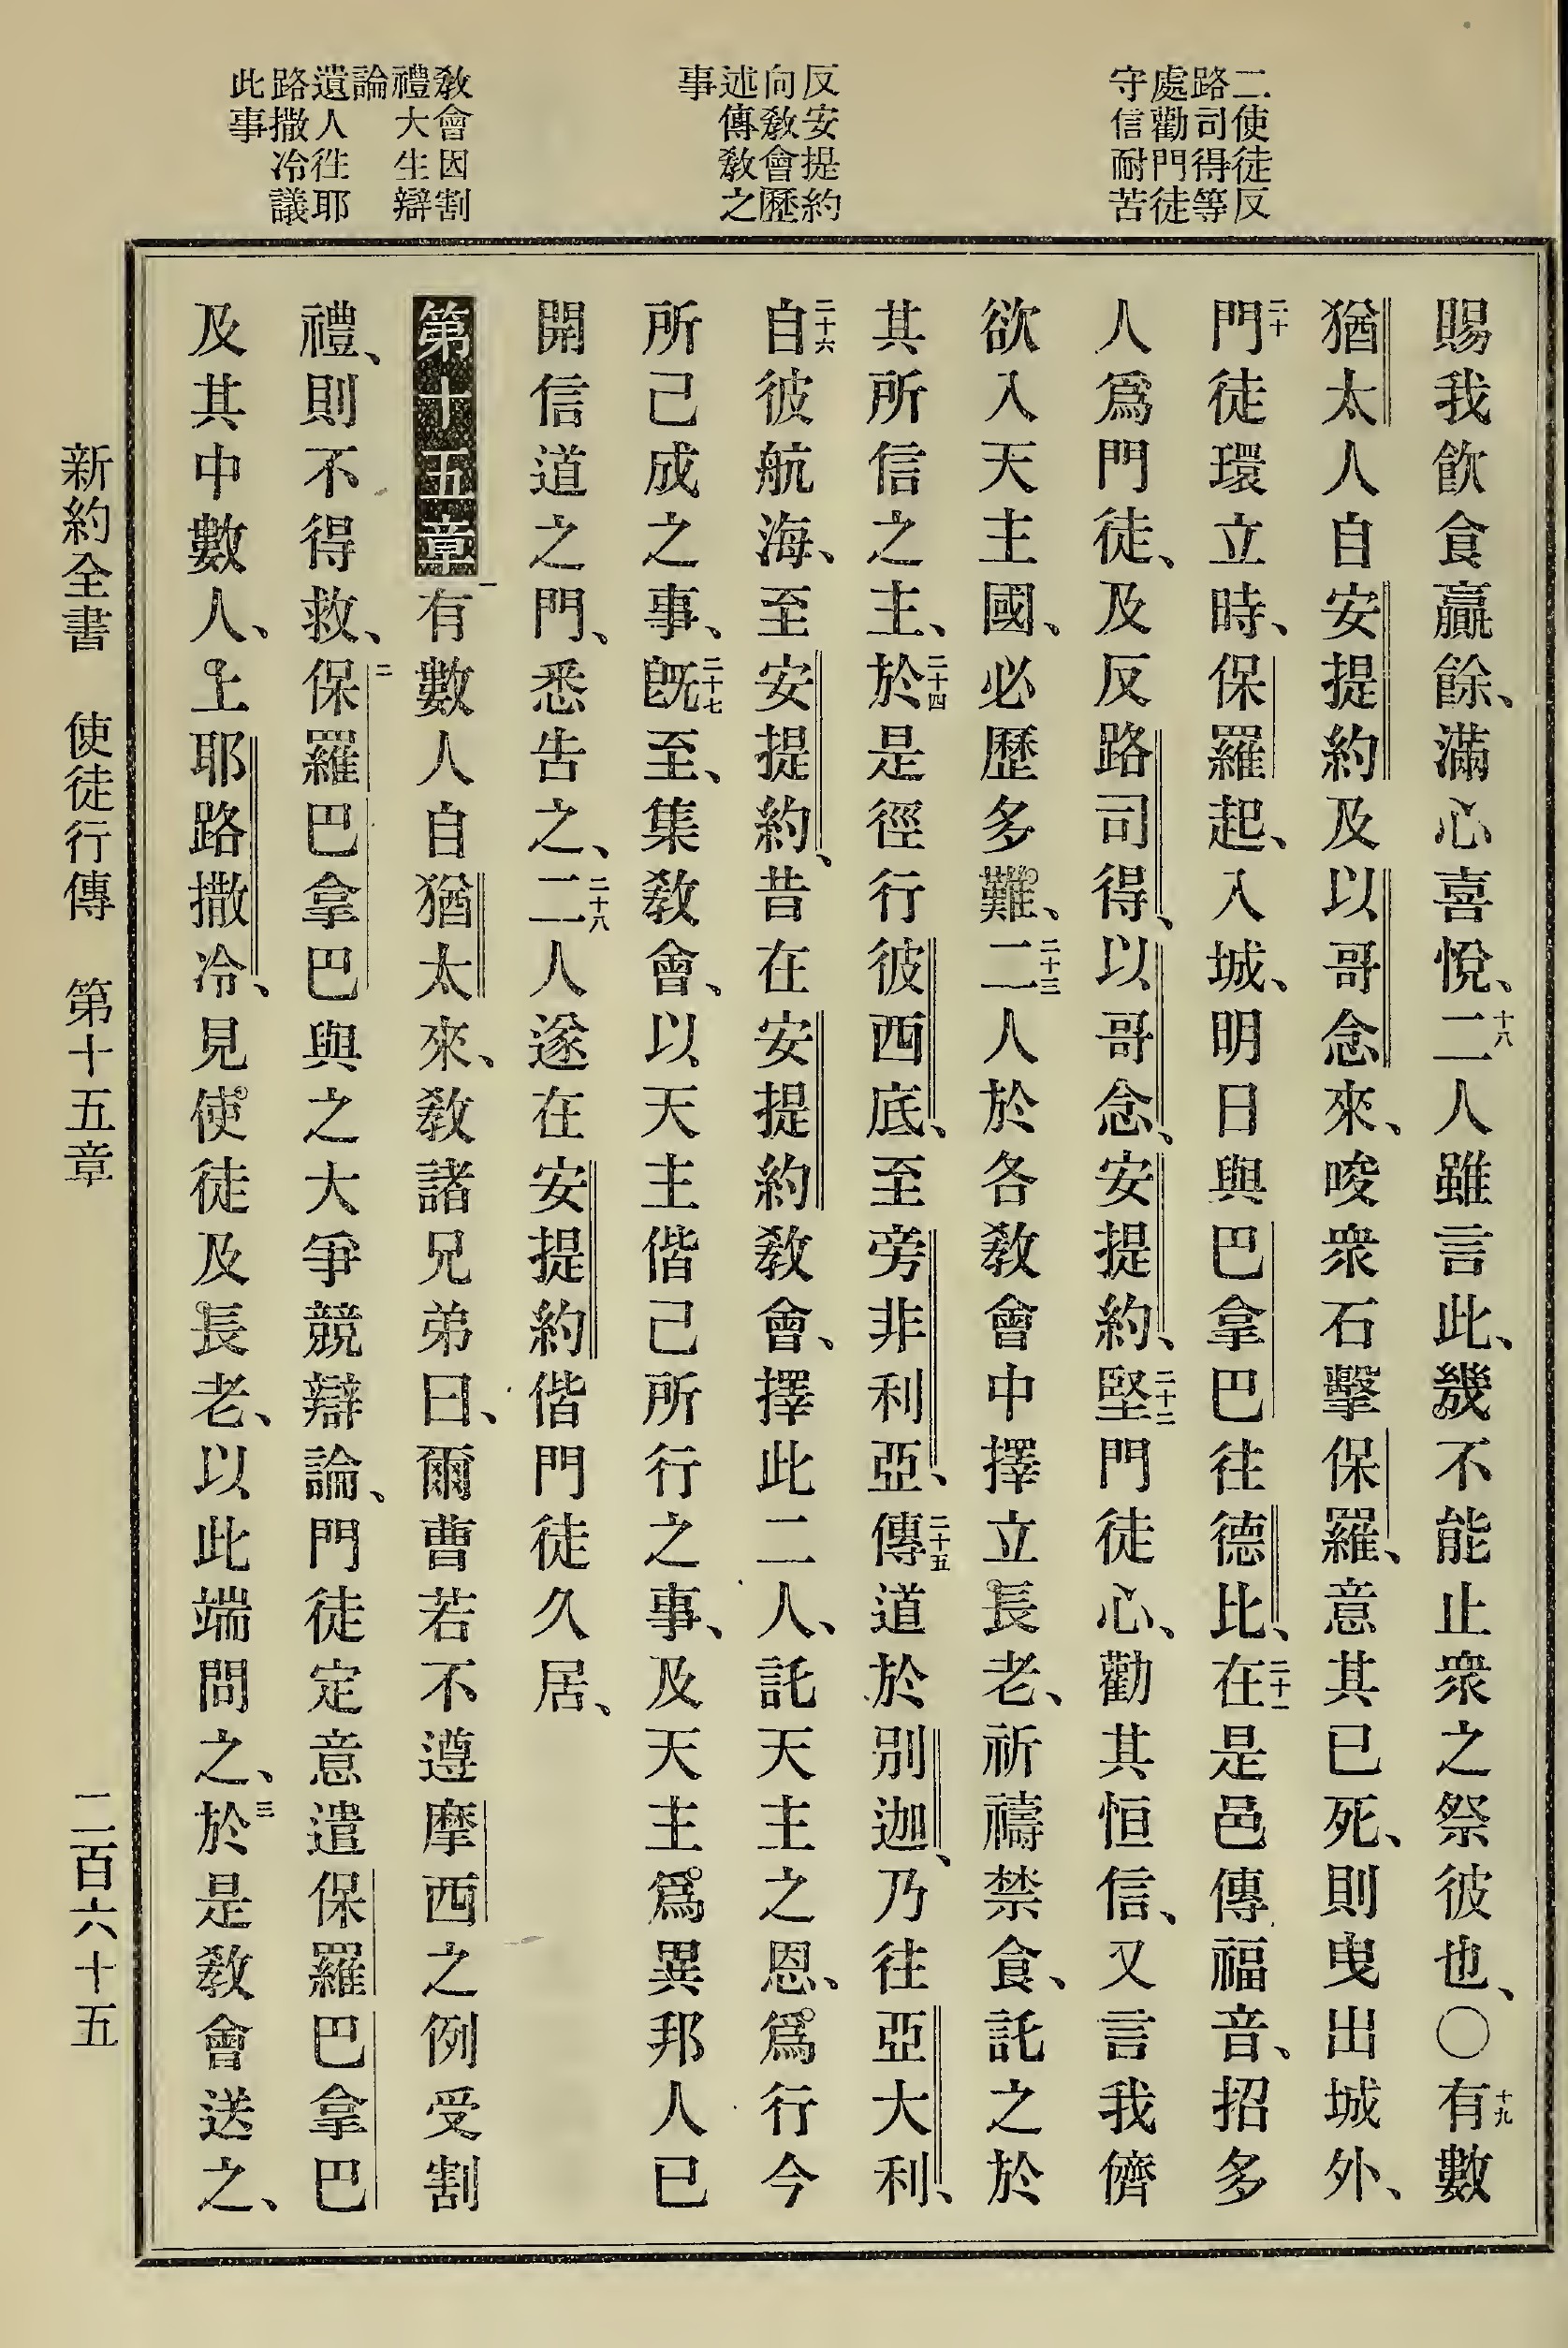 二使徒反
路司得等
處勸門徒
守信耐苦
反安提約
向敎會歷
述傳敎之
事
敎會因割
禮大生辯
論
遺人徃耶
路撒冷議
此事
賜我飲食贏餘、滿心喜悅、十八二人雖言此、幾不能止衆之祭彼也、〇十九有數
猶太人自安提約及以哥念來、唆衆石擊保羅、意其已死、則曳出城外、
二十門徒環立時、保羅起、入城、明日與巴拿巴往德比、二十一在是邑傳福音、招多
人爲門徒、及反路司得、以哥念、安提約、二十二堅門徒心、勸其恒信、又言我儕
欲入天主國、必歷多難、二十三二人於各敎會中擇立長老、祈禱禁食、託之於
其所信之主、二十四於是徑行彼西底、至旁非利亞、二十五傳道於別迦、乃往亞大利、
二十六自彼航海、至安提約、昔在安提約敎會、擇此二人、託天主之恩、爲行今
所已成之事、二十七旣至、集敎會、以天主偕己所行之事、及天主爲異邦人已
開信道之門、悉告之、二十八二人遂在安提約偕門徒久居、
第十五章 一有數人自猶太來、敎諸兄弟曰、爾曹若不遵摩西之例受割
禮、則不得救、二保羅巴拿巴與之大爭競辯論、門徒定意遣保羅巴拿巴
及其中數人、上耶路撒冷、見使徒及長老、以此端問之、三於是敎會送之、
新約全書 使徒行傳 第十五章 二百六十五